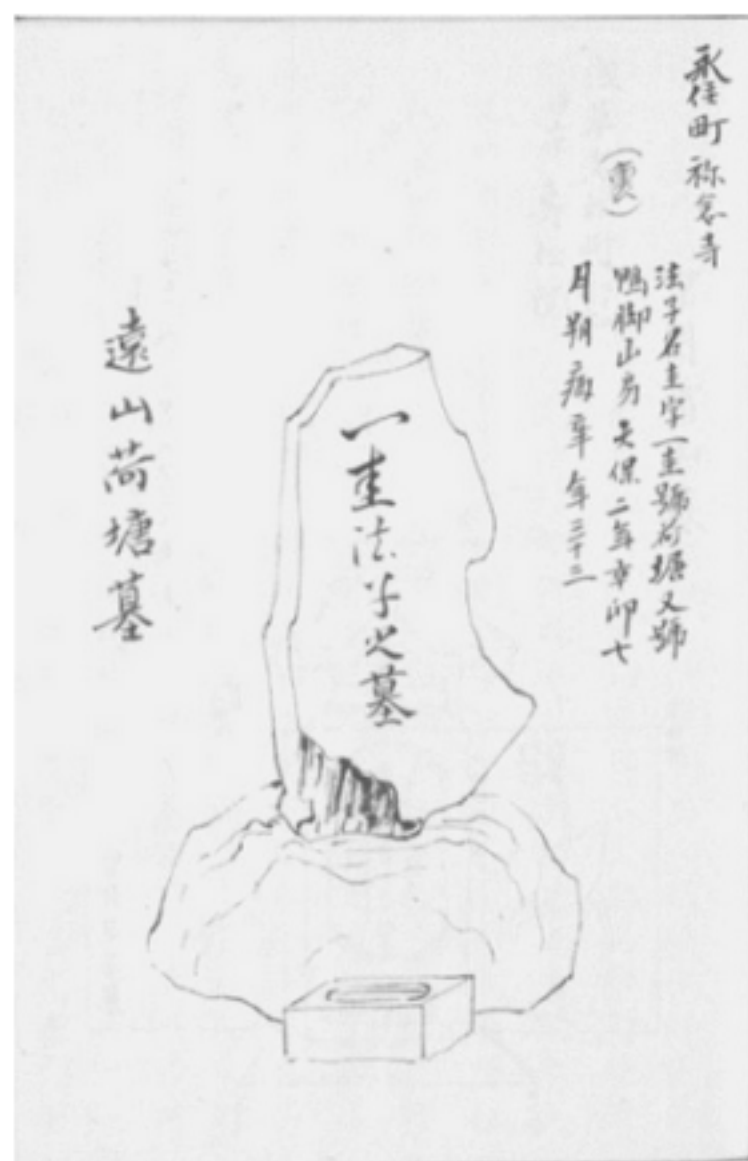 永住町祢念寺
(裏)
法子名圭字一圭號荷塘又號
鴨脚山房天保二年辛卯七
月朔病卒年三十三
一圭法子之墓
遠山荷塘墓